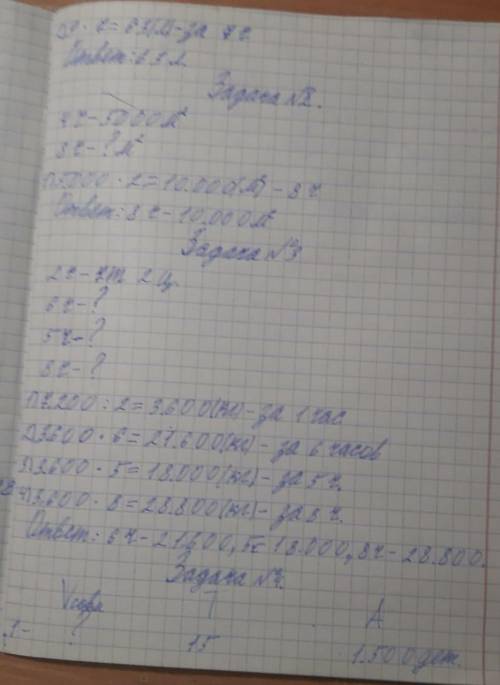 9 · 7 = 63(л) - за 7 ч.
Ответ: 63 л.
Задача №2.
4ч - 5000 м²
8ч - ? м²
1) 5000 · 2 = 10.000(м²) - 8 ч.
Ответ: 8 ч - 10.000 м²
Задача №3
2ч - 7т. 2 ц.
6ч - ?
5ч - ?
8ч - ?
1) 7.200 : 2 = 3.600(кг) - за 1 час
2) 3600 · 6 = 21.600(кг) - за 6 часов
3) 3.600 · 5 = 18.000(кг) - за 5 ч.
4) 3.600 · 8 = 28.800(кг) - за 8 ч.
Ответ: 6 ч - 21.600, 5ч 18.000, 8ч - 28.800.
Задача №4.
T A
1- ? 15 1.500 дет.